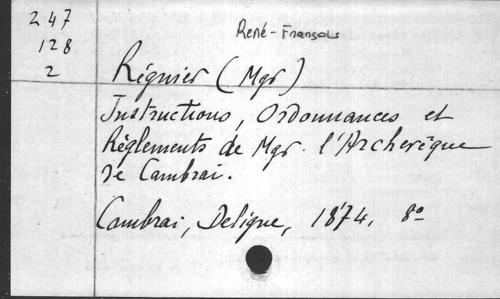 247
128
2
René-François
Régnier (Mgr)
Instructions, Ordonnances et
Règlements de Mgr. l'Archevêque
de Cambrai.
Cambrai, Deligne, 1874, 8º